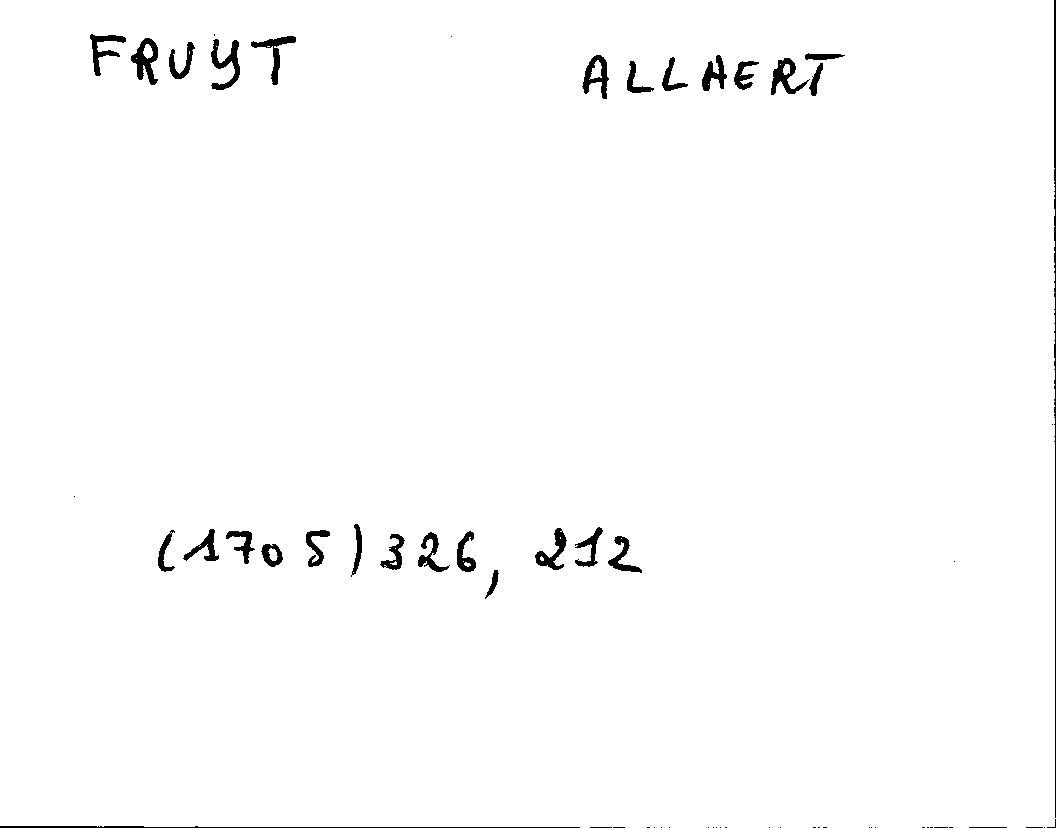 FRUYT ALLAERT
(1705) 326, 212